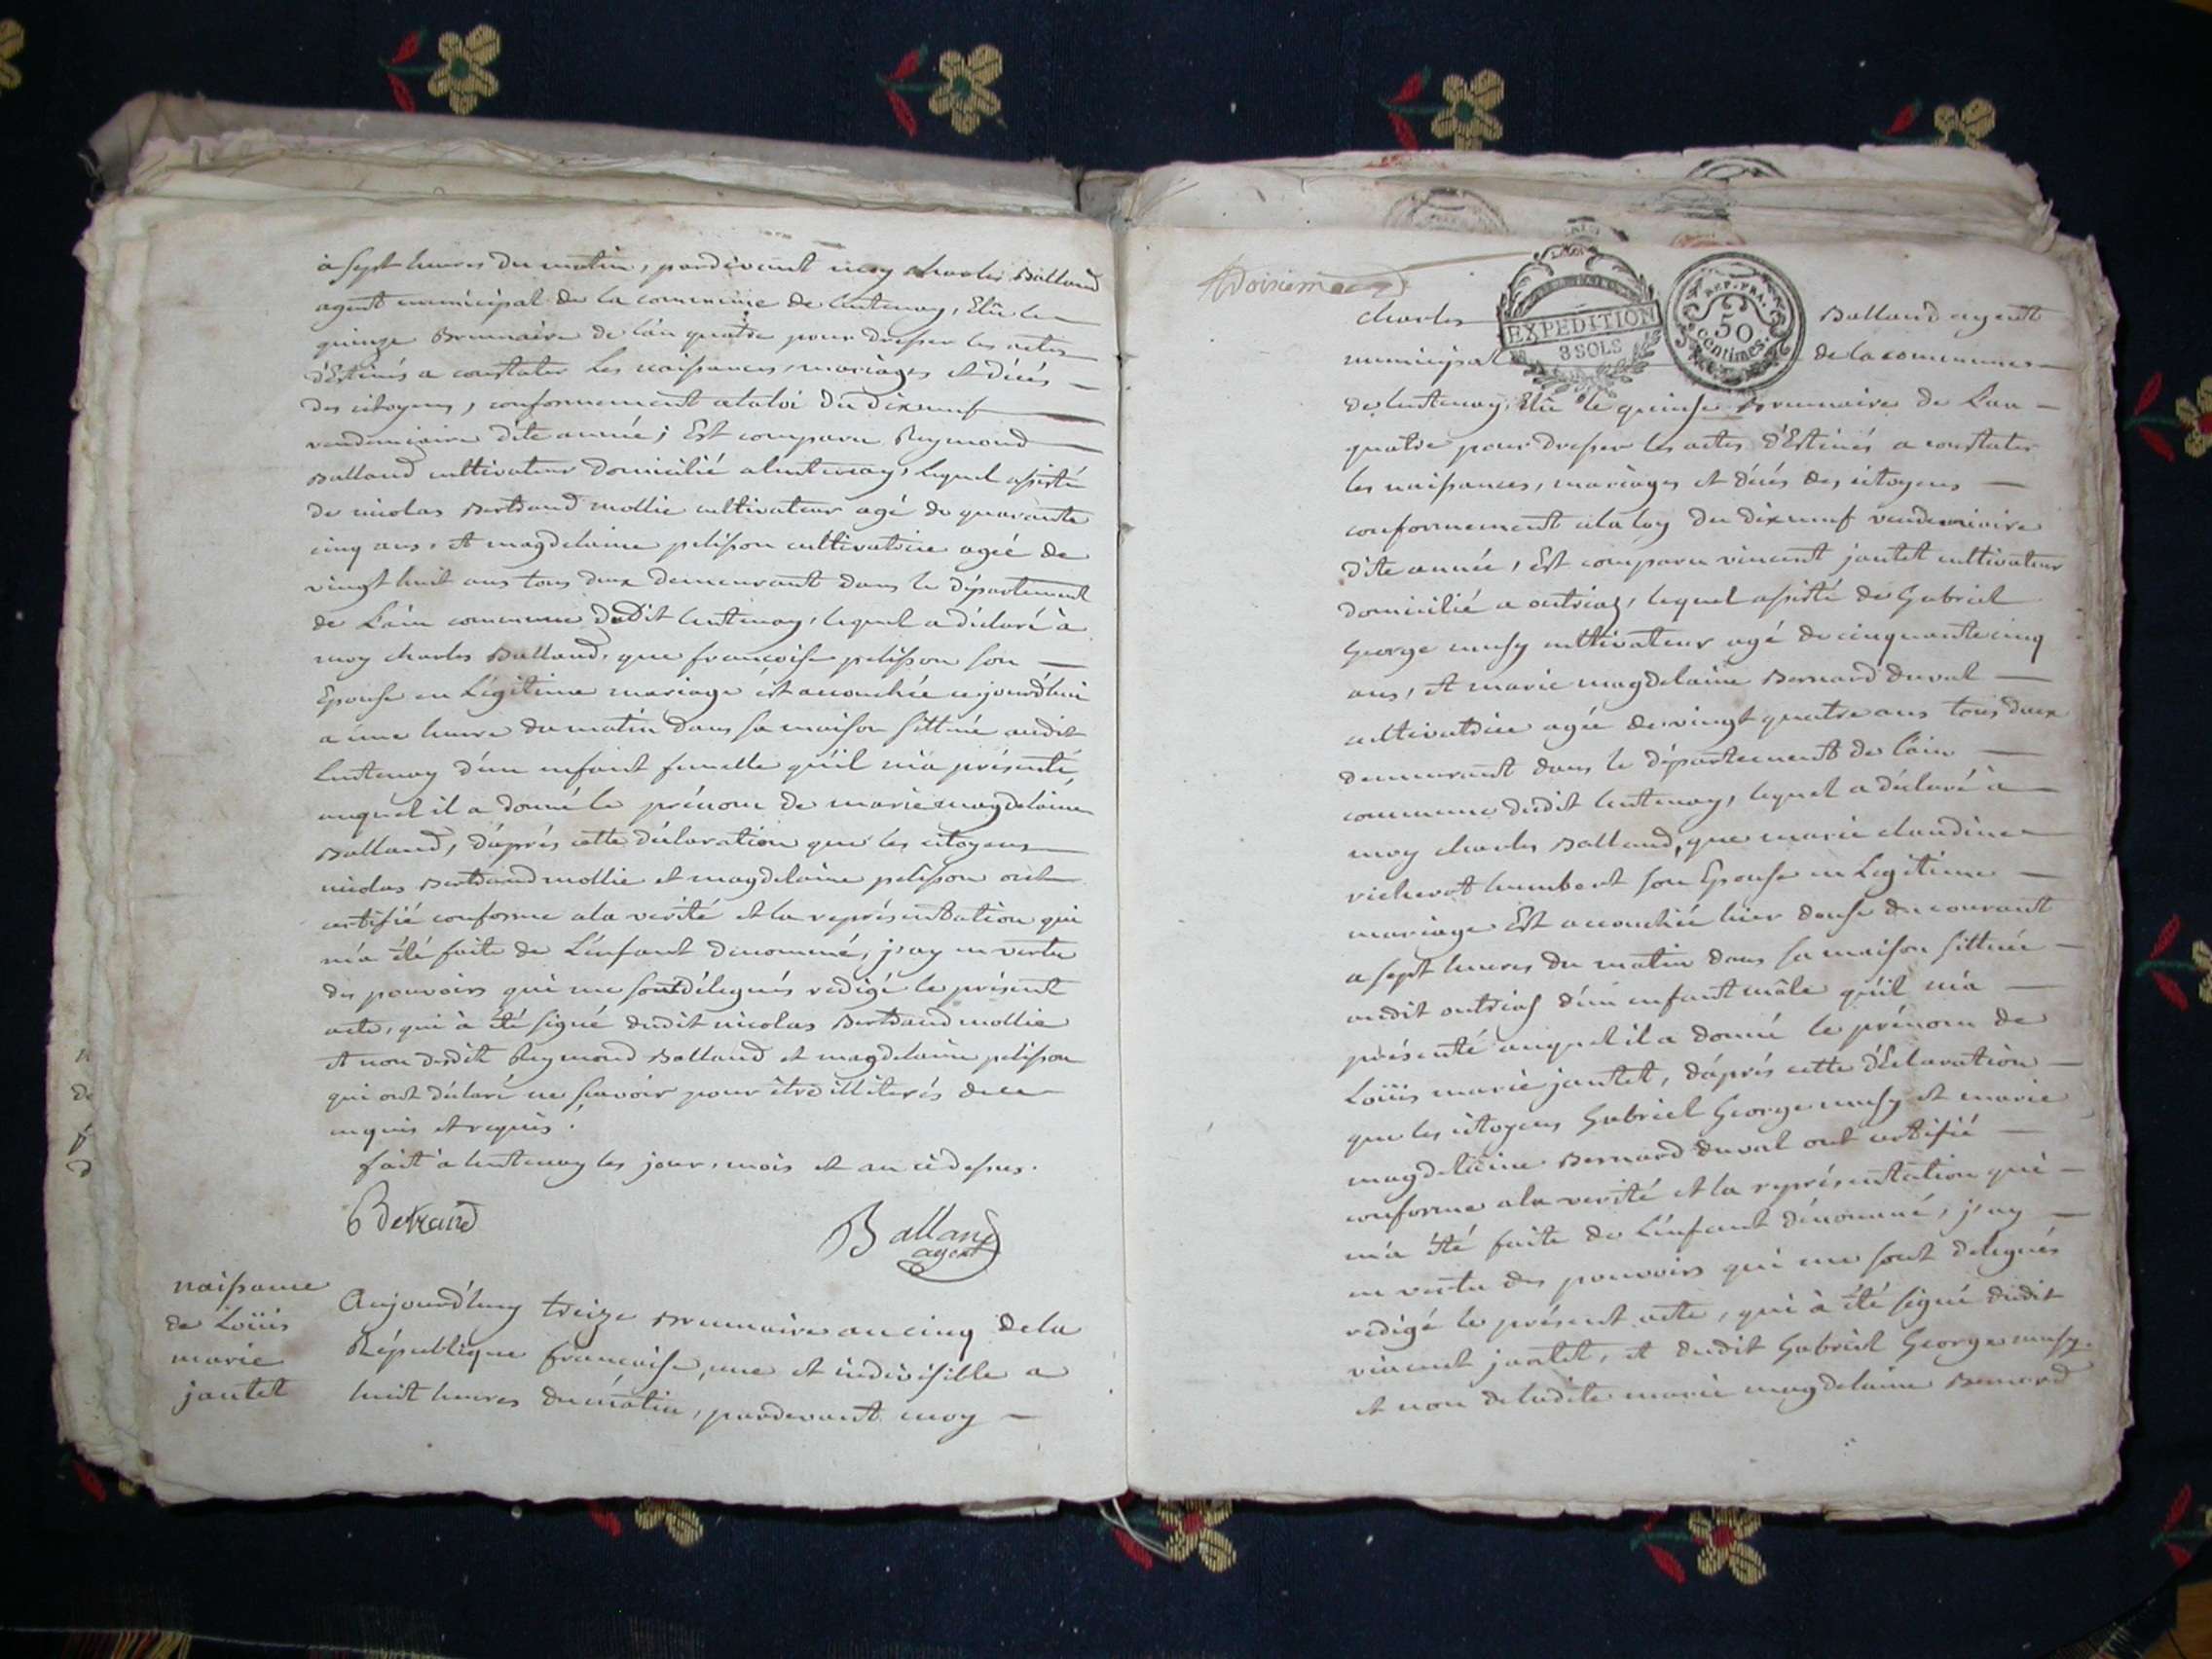 à sept heures du matin, pardevant moy charles Balland
agent municipal de la commune de lentenay, Elû le
quinze Brumaire de l'an quatre pour dresser les actes
d'Estinés a constater les naissances, mariages et décés
des citoyens, conformement alaloi du dixneuf
vendemiaire d'ite année; Est comparu Reymond
Balland cultivateur domicilié alentenay, lequel assisté
de nicolas Bertrand mollie cultivateur agé de quarante
cinq ans, et magdelaine pelisson cultivatrice ageé de
vingt huit ans tous deux demeurant dans le département
de L'ain commune duDit lentenay, lequel a déclaré à
moy charles Balland, que françoise pelisson son
Epouse en Légitime mariage est accouchée cejourd'hui
a une heure du matin dans sa maison sittuée audit
Lentenay d'un enfant femelle qu'il m'a présenté,
auquel il a donné le prénom de marie magdelaine
Balland, d'aprés cette déclaration que les citoyens
nicolas Bertrand mollie et magdelaine pelisson ont
certifié conforme ala verité et la représentation qui
m'a été faite de L'enfant denommé, j'ay en vertu
des pouvoirs qui me sont délegués redigé le présent
acte, qui à été signé dudit nicolas Bertrand mollie
et non desdits Reymond Balland et magdelaine pelisson
qui ont déclaré ne scavoir pour être illiterés de ce
enquis et requis.
fait a lentenay les jour, mois et an cidessus.
Betrand
Balland
agent
naissance
de Loüis
marie
jantet
Aujourd'huy treize Brumaire an cinq dela
République française, une et indivisille a
huit heures du matin, pardevant moy
EXPEDITION
3 SOLS
REP. FRA.
50
centimes.
charles Balland agent
municipal de la commune
de lentenay, Elû le quinse Brumaire de L'an
quatre pour dresser les actes d'Estinés a constater
les naissances, mariages et décés des citoyens
conformement ala loy du dixneuf vendemiaire
d'ite année, Est comparu vincent jantet cultivateur
domicilié a outriaz, lequel assisté de Gabriel
George musy cultivateur agé de cinquante cinq
ans, et marie magdelaine Bernard duval
cultivatrice agée de vingt quatre ans tous deux
demeurant dans le département de l'ain
commune dudit lentenay, lequel a déclaré à
moy charles Balland, que marie claudine
richerot humbert son Epouse en Legitime
mariage Est accouchée hier douse du courant
a sept heures du matin dans sa maison sittuée
audit outrias d'un enfant mâle qu'il m'a
présenté auquel il a donné le prénom de
Loüis marie jantet, d'aprés cette d'Eclaration
que les citoyens Gabriel George musy et marie
magdelaine Bernard duval ont certifié
conforme ala verité et la représentation qui
m'a été faite de L'enfant dénommé, j'ay
en vertu des pouvoirs qui me sont delegués
redigé le présent acte, qui à été signé dudit
vincent jantet, et dudit Gabriel George musy.
et non deladite marie magdelaine Bernard